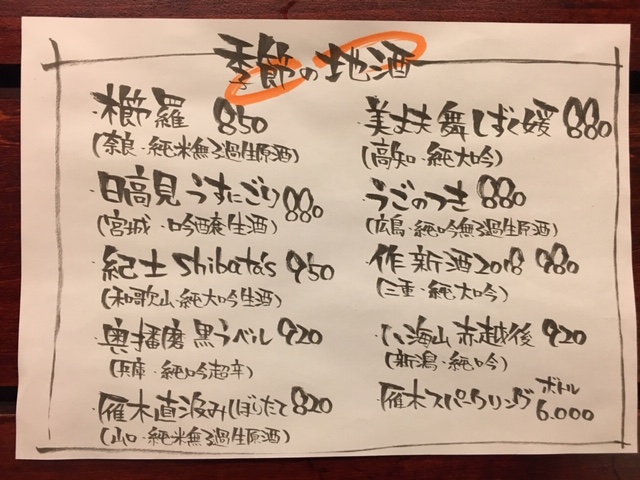 季節の地酒
・櫛羅 850
(奈良・純米無ろ過生原酒)
・日高見うすにごり 880
(宮城・吟醸生酒)
・紀土 Shibata's 950
(和歌山・純大吟生酒)
・奥播磨 黒ラベル 920
(兵庫・純吟超辛)
・雁木直汲みしぼりたて 820
(山口・純米無ろ過生原酒)
・美丈夫 舞 しずく媛 880
(高知・純大吟)
・うごのつき 880
(広島・純吟無ろ過生原酒)
・作 新酒2018 980
(三重・純大吟)
・八海山 赤越後 920
(新潟・純吟)
・雁木スパークリング ボトル 6.000